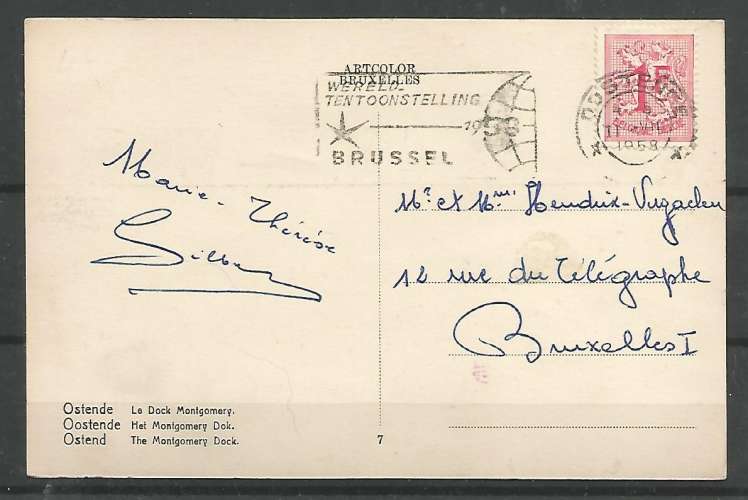 ARTCOLOR
BRUXELLES
WERELD-
TENTOONSTELLING
1958
BRUSSEL
OOSTENDE
1958
1F
Marie-Thérèse
Gilber
Mr et Mme Hendrix-
12 rue du Télégraphe
Bruxelles I
Ostende Le Dock Montgomery.
Oostende Het Montgomery Dok.
Ostend The Montgomery Dock.
7